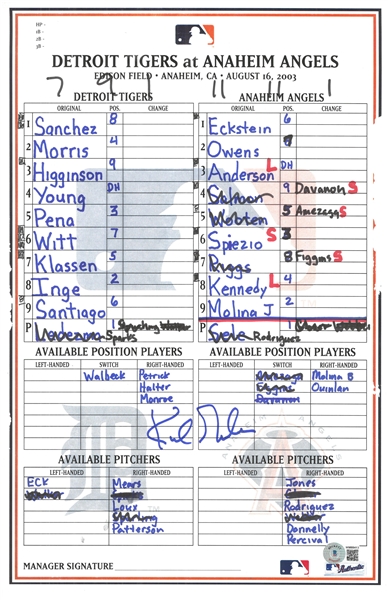 HP -
1B -
2B -
3B -
DETROIT TIGERS at ANAHEIM ANGELS
EDISON FIELD • ANAHEIM, CA • AUGUST 16, 2003
7 9 11 11 1
DETROIT TIGERS ANAHEIM ANGELS
ORIGINAL POS. CHANGE ORIGINAL POS. CHANGE
1 Sanchez 8 1 Eckstein 6
2 Morris 4 2 Owens
3 Higginson 9 3 Anderson L DH
4 Young DH 4 Salmon 9 Davanon S
5 Pena 3 5 5 Amezaga S
6 Witt 7 6 Spiezio S 3
7 Klassen 5 7 Riggs 8 Figgins S
8 Inge 2 8 Kennedy L 4
9 Santiago 6 9 Molina J 2
P Ledezma Sparks 1 P Rodriguez 1
AVAILABLE POSITION PLAYERS AVAILABLE POSITION PLAYERS
LEFT-HANDED SWITCH RIGHT-HANDED LEFT-HANDED SWITCH RIGHT-HANDED
Walbeck Petrick Amezaga Molina B
Halter Figgins Quinlan
Monroe Davanon
AVAILABLE PITCHERS AVAILABLE PITCHERS
LEFT-HANDED RIGHT-HANDED LEFT-HANDED RIGHT-HANDED
ECK Mears Jones
Walker Sparks
Loux Rodriguez
Sparling Webber
Patterson Donnelly
Percival
MANAGER SIGNATURE
Authentic